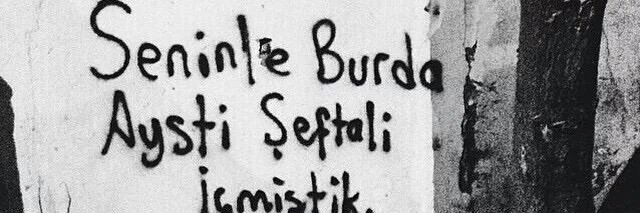 Seninle Burda
Aysti Şeftali
İçmiştik.